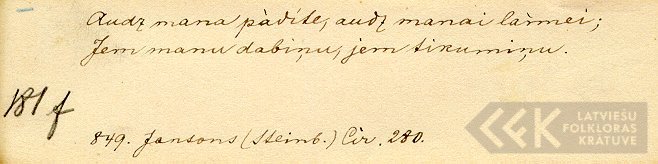 Audz mana pàdíte, audz manai laìmei;
Jem manu dabiņu, jem tikumiņu.
181 f
849. Jansons (Steinb.) Cir. 280.
LATVIEŠU
FOLKLORAS
KRATUVE